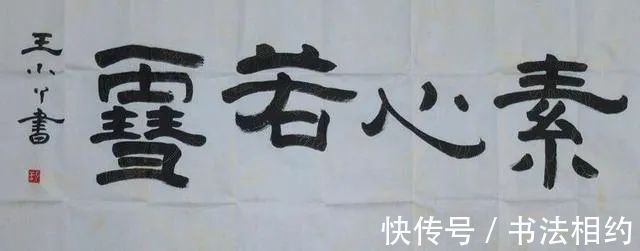 素心若䨮
王小丫書
快传号／书法相约